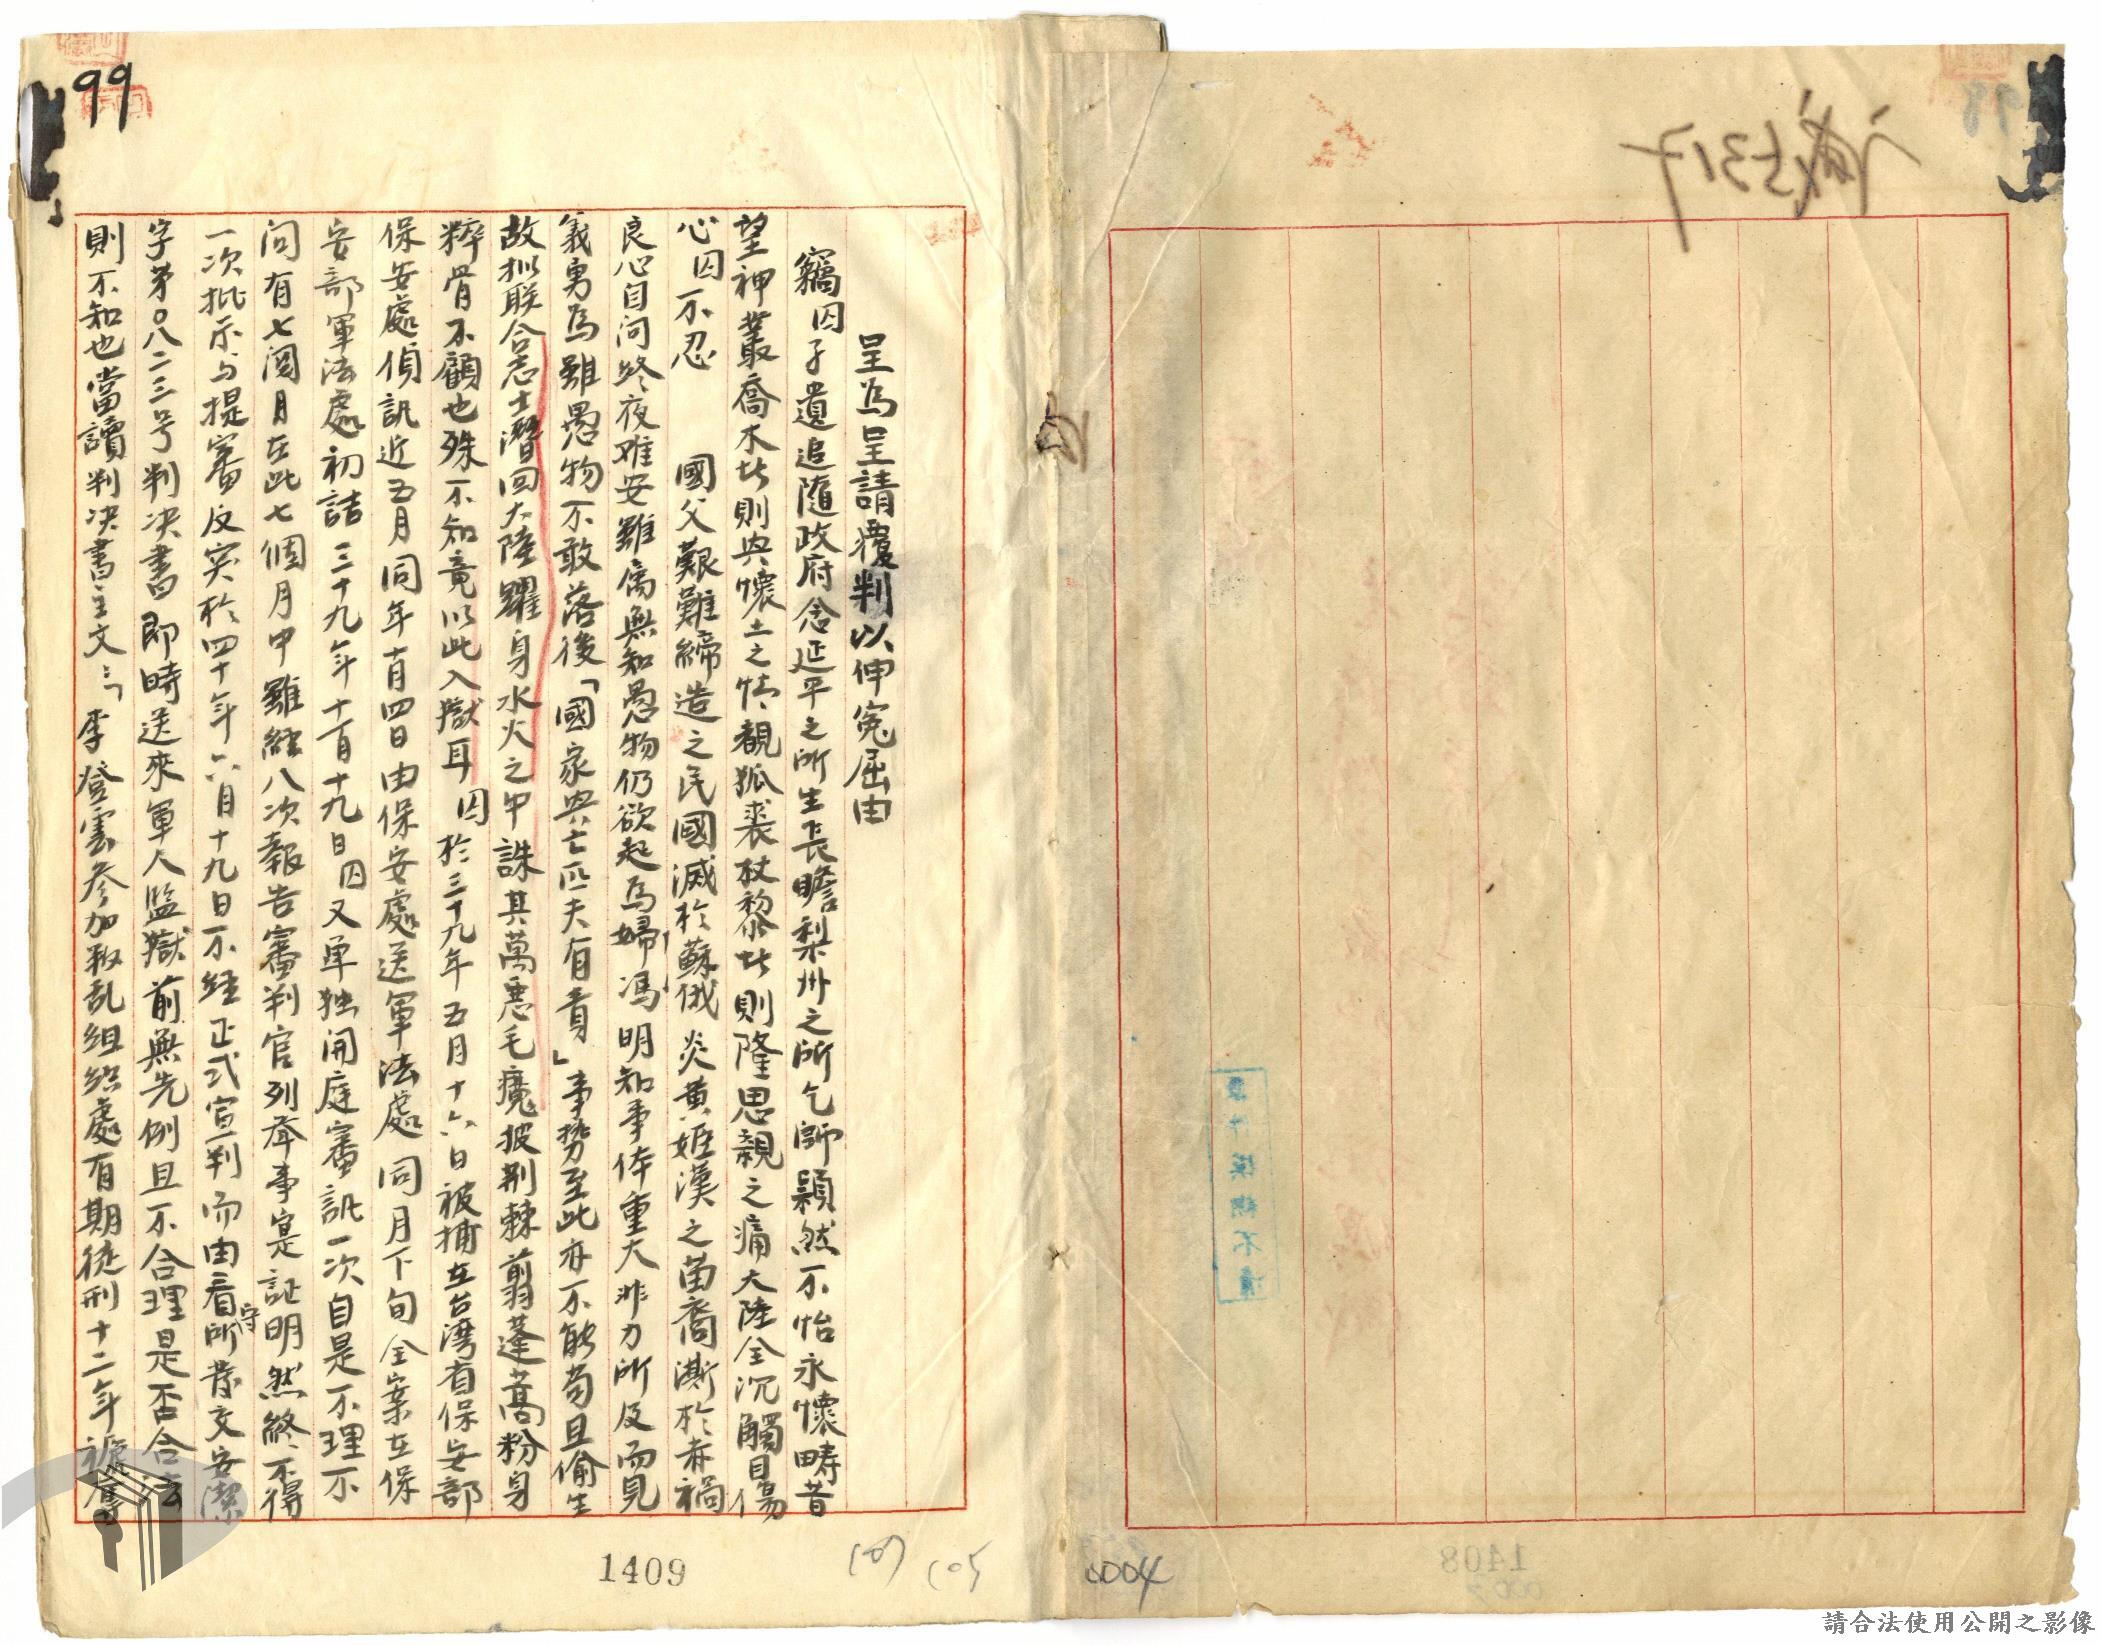 呈為呈請覆判以伸冤屈由
竊囚孑遺追隨政府念延平之所生長瞻梨州之所乞師顯然不怡永懷疇昔
望神叢喬木此則與懷土之情觀狐裘杖藜此則隆思親之痛大陸全沉觸目傷
心囚不忍　國父艱難締造之民國滅於蘇俄炎黃姬漢之苗裔澌於赤禍
良心自问終夜难安雖屬無知愚物仍欲起為婦馮明知事体重大非力所及而見
義勇為雖愚物不敢落後「國家興亡匹夫有責」事勢至此亦不能苟且偷生
故拟联合志士潛回大陸躍身水火之中誅其萬惡毛魔披荆棘剪蓬蒿粉身
粹骨不顧也殊不知竟以此入獄耳　囚於三十九年五月十六日被捕在台灣省保安部
保安處偵訊近五月同年十月四日由保安處送軍法處同月下旬全案在保
安部軍法處初詰三十九年十一月十九日囚又单独開庭審訊一次自是不理不
问有七個月在此七個月中雖經八次報告審判官列举事实是証明然終不得
一次批示与提審反突於四十年六月十九日不經正式宣判而由看守所發交安潔
字第〇八二三号判决書即時送來軍人監獄前無先例且不合理是否合法
則不知也當讀判决書主文：「李登雲参加叛乱組織處有期徒刑十二年褫奪
99
98
1409
1408
107
105
0004
請合法使用公開之影像